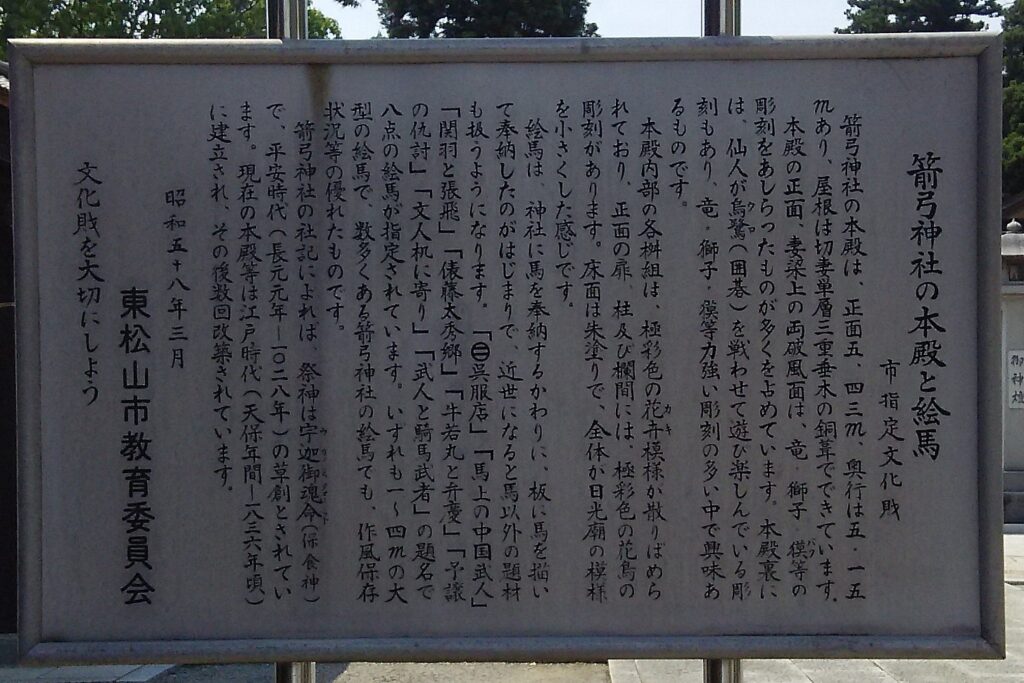 箭弓神社の本殿と絵馬
市指定文化財
箭弓神社の本殿は、正面五、四三m、奥行は五・一五
mあり、屋根は切妻単層三重垂木の銅葺でできています。
本殿の正面、妻梁上の両破風面は、竜・獅子・獏等の
彫刻をあしらったものが多くを占めています。本殿裏に
は、仙人が烏鷺(囲碁)を戦わせて遊び楽しんでいる彫
刻もあり、竜・獅子・獏等力強い彫刻の多い中で興味あ
るものです。
本殿内部の各桝組は、極彩色の花卉模様が散りばめら
れており、正面の扉、柱及び欄間には、極彩色の花鳥の
彫刻があります。床面は朱塗りで、全体が日光廟の模様
を小さくした感じです。
絵馬は、神社に馬を奉納するかわりに、板に馬を描い
て奉納したのがはじまりで、近世になると馬以外の題材
も扱うようになります。「㊁呉服店」「馬上の中国武人」
「関羽と張飛」「俵藤太秀郷」「牛若丸と弁慶」「予譲
の仇討」「文人机に寄り」「武人と騎馬武者」の題名で
八点の絵馬が指定されています。いずれも一〜四mの大
型の絵馬で、数多くある箭弓神社の絵馬でも、作風保存
状況等の優れたものです。
箭弓神社の社記によれば、祭神は宇迦御魂命(保食神)
で、平安時代(長元元年―一〇二八年)の草創とされてい
ます。現在の本殿等は江戸時代(天保年間―一八三六年頃)
に建立され、その後数回改築されています。
昭和五十八年三月
東松山市教育委員会
文化財を大切にしよう